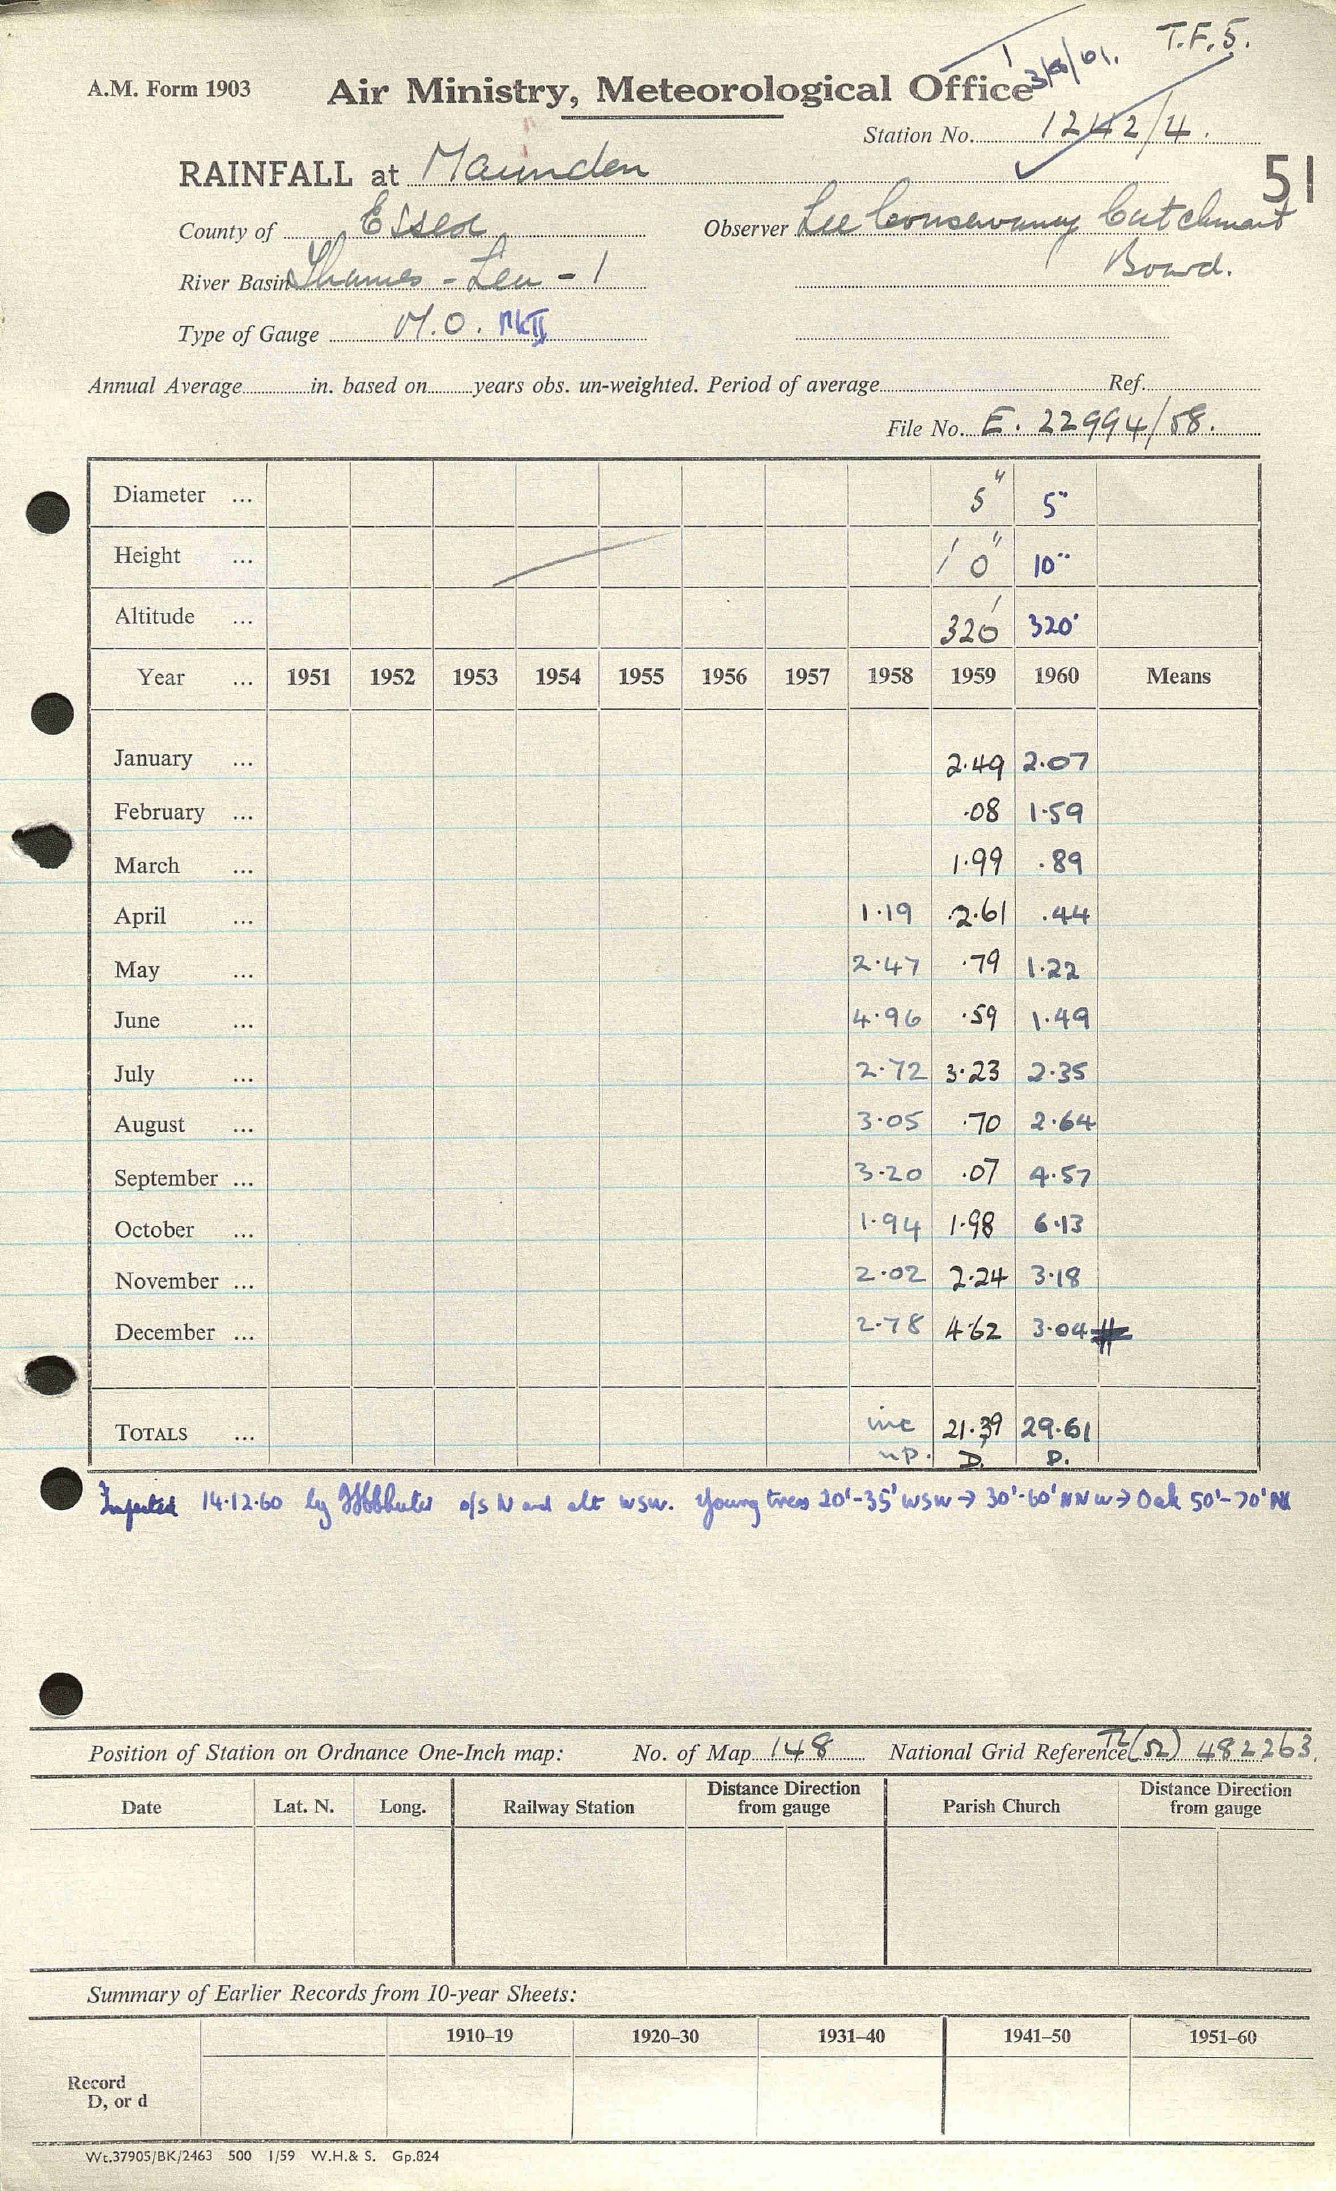 T.F.5.
A.M. Form 1903 Air Ministry, Meteorological Office
Station No. 1242/4.
51
RAINFALL at Maunden
County of Essex Observer Lee Conservancy Catchment
River Basin Thames - Lea - 1 Board.
Type of Gauge M.O. MkII
Annual Average in. based on years obs. un-weighted. Period of average Ref.
File No. E. 22994/58.
Diameter ... 5" 5"
Height ... 1' 0" 10"
Altitude ... 320' 320'
Year ... 1951 1952 1953 1954 1955 1956 1957 1958 1959 1960 Means
January ... 2.49 2.07
February ... .08 1.59
March ... 1.99 .89
April ... 1.19 2.61 .44
May ... 2.47 .79 1.22
June ... 4.96 .59 1.49
July ... 2.72 3.23 2.35
August ... 3.05 .70 2.64
September ... 3.20 .07 4.57
October ... 1.94 1.98 6.13
November ... 2.02 2.24 3.18
December ... 2.78 4.62 3.04
TOTALS ... inc 21.39 29.61
np. D. D.
Inspected 14.12.60 by o/s N and alt WSW. Young trees 20'-35' WSW → 30'-60' NNW → Oak 50'-70'
Position of Station on Ordnance One-Inch map: No. of Map 148 National Grid Reference TL(52) 482263.
Date Lat. N. Long. Railway Station Distance Direction from gauge Parish Church Distance Direction from gauge
Summary of Earlier Records from 10-year Sheets:
1910–19 1920–30 1931–40 1941–50 1951–60
Record
D, or d
Wt.37905/BK/2463 500 1/59 W.H.& S. Gp.824